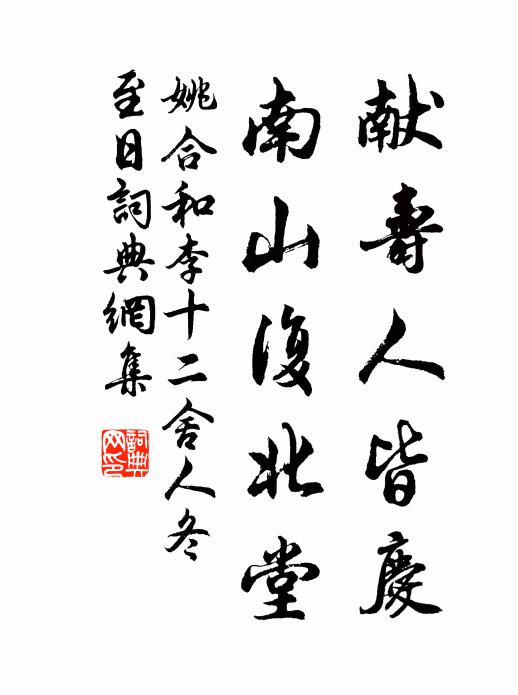 献壽人皆慶
南山復北堂
姚合和李十二舍人冬
至日詞典網集
詞典
网印